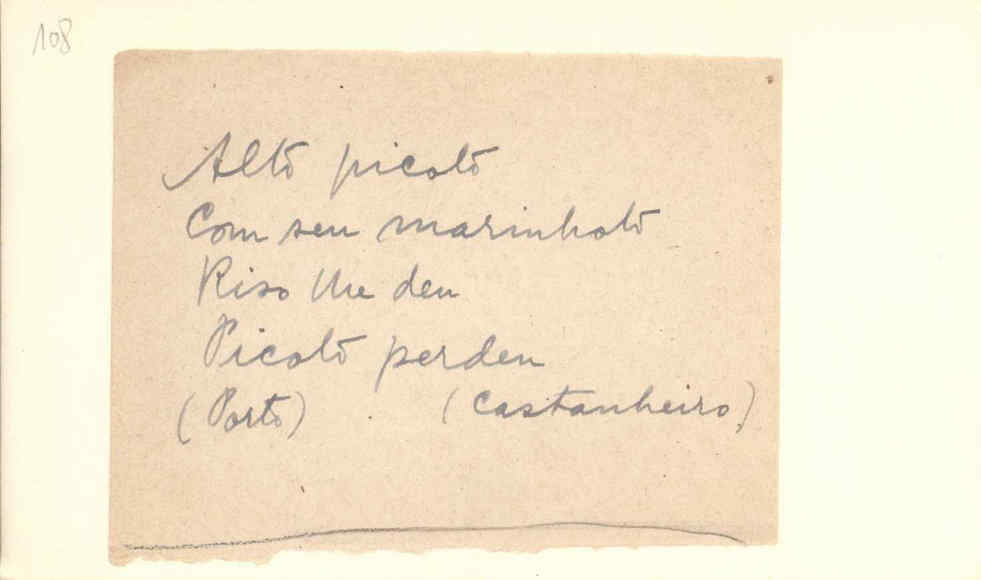 108
Alto picoto
Com seu marinhoto
Riso lhe deu
Picoto perdeu
(Porto) (Castanheiro)